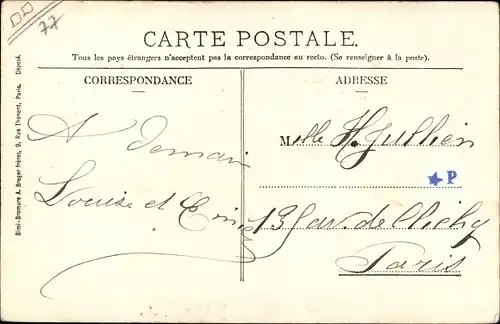 77
CARTE POSTALE.
Tous les pays étrangers n'acceptent pas la correspondance au recto. (Se renseigner à la poste).
CORRESPONDANCE
ADRESSE
Simili-Bromure A. Breger frères, 9, Rue Thénard, Paris. Déposé.
A demain
Louise et
Mlle H. Jullien
P
13 av. de Clichy
Paris